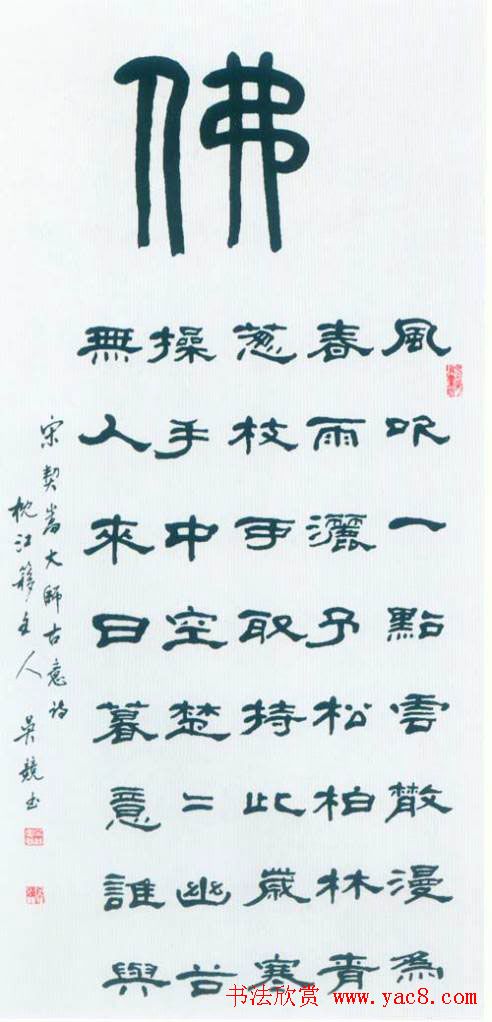 佛
風吹一點雲散漫為
春雨灑予松柏林青
葱枝可取持此歲寒
操手中空楚〻幽谷
無人來日暮意誰與
宋契嵩大師古意詩
枕江簃主人 吳競书
书法欣赏 www.yac8.com